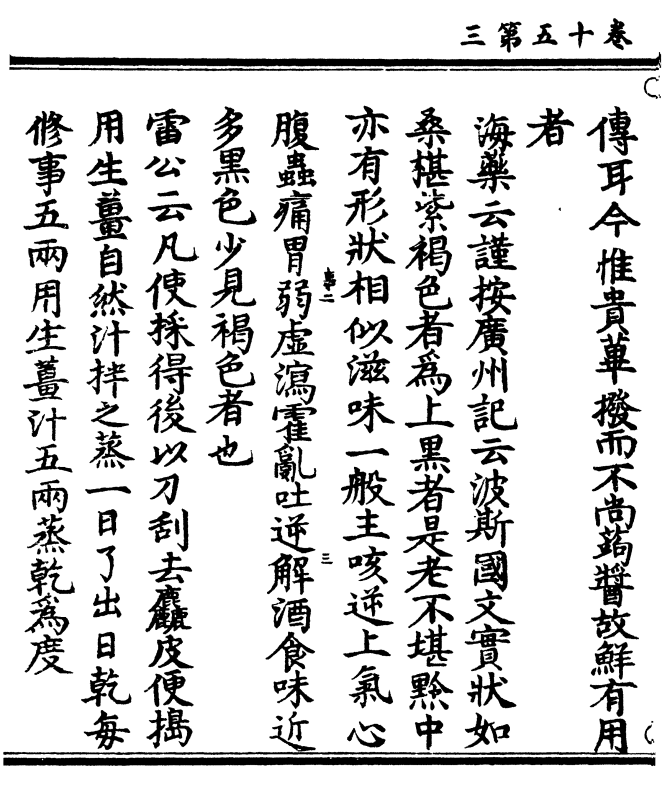 卷十五第三
傳耳今惟貴蓽撥而不尚蒟醬故鮮有用
者
海藥云謹按廣州記云波斯國文實狀如
桑椹紫褐色者為上黑者是老不堪黔中
亦有形狀相似滋味一般主咳逆上氣心
腹蟲痛胃弱虛瀉霍亂吐逆解酒食味近
多黑色少見褐色者也
雷公云凡使採得後以刀刮去麤皮便搗
用生薑自然汁拌之蒸一日了出日乾每
修事五兩用生薑汁五兩蒸乾為度
三